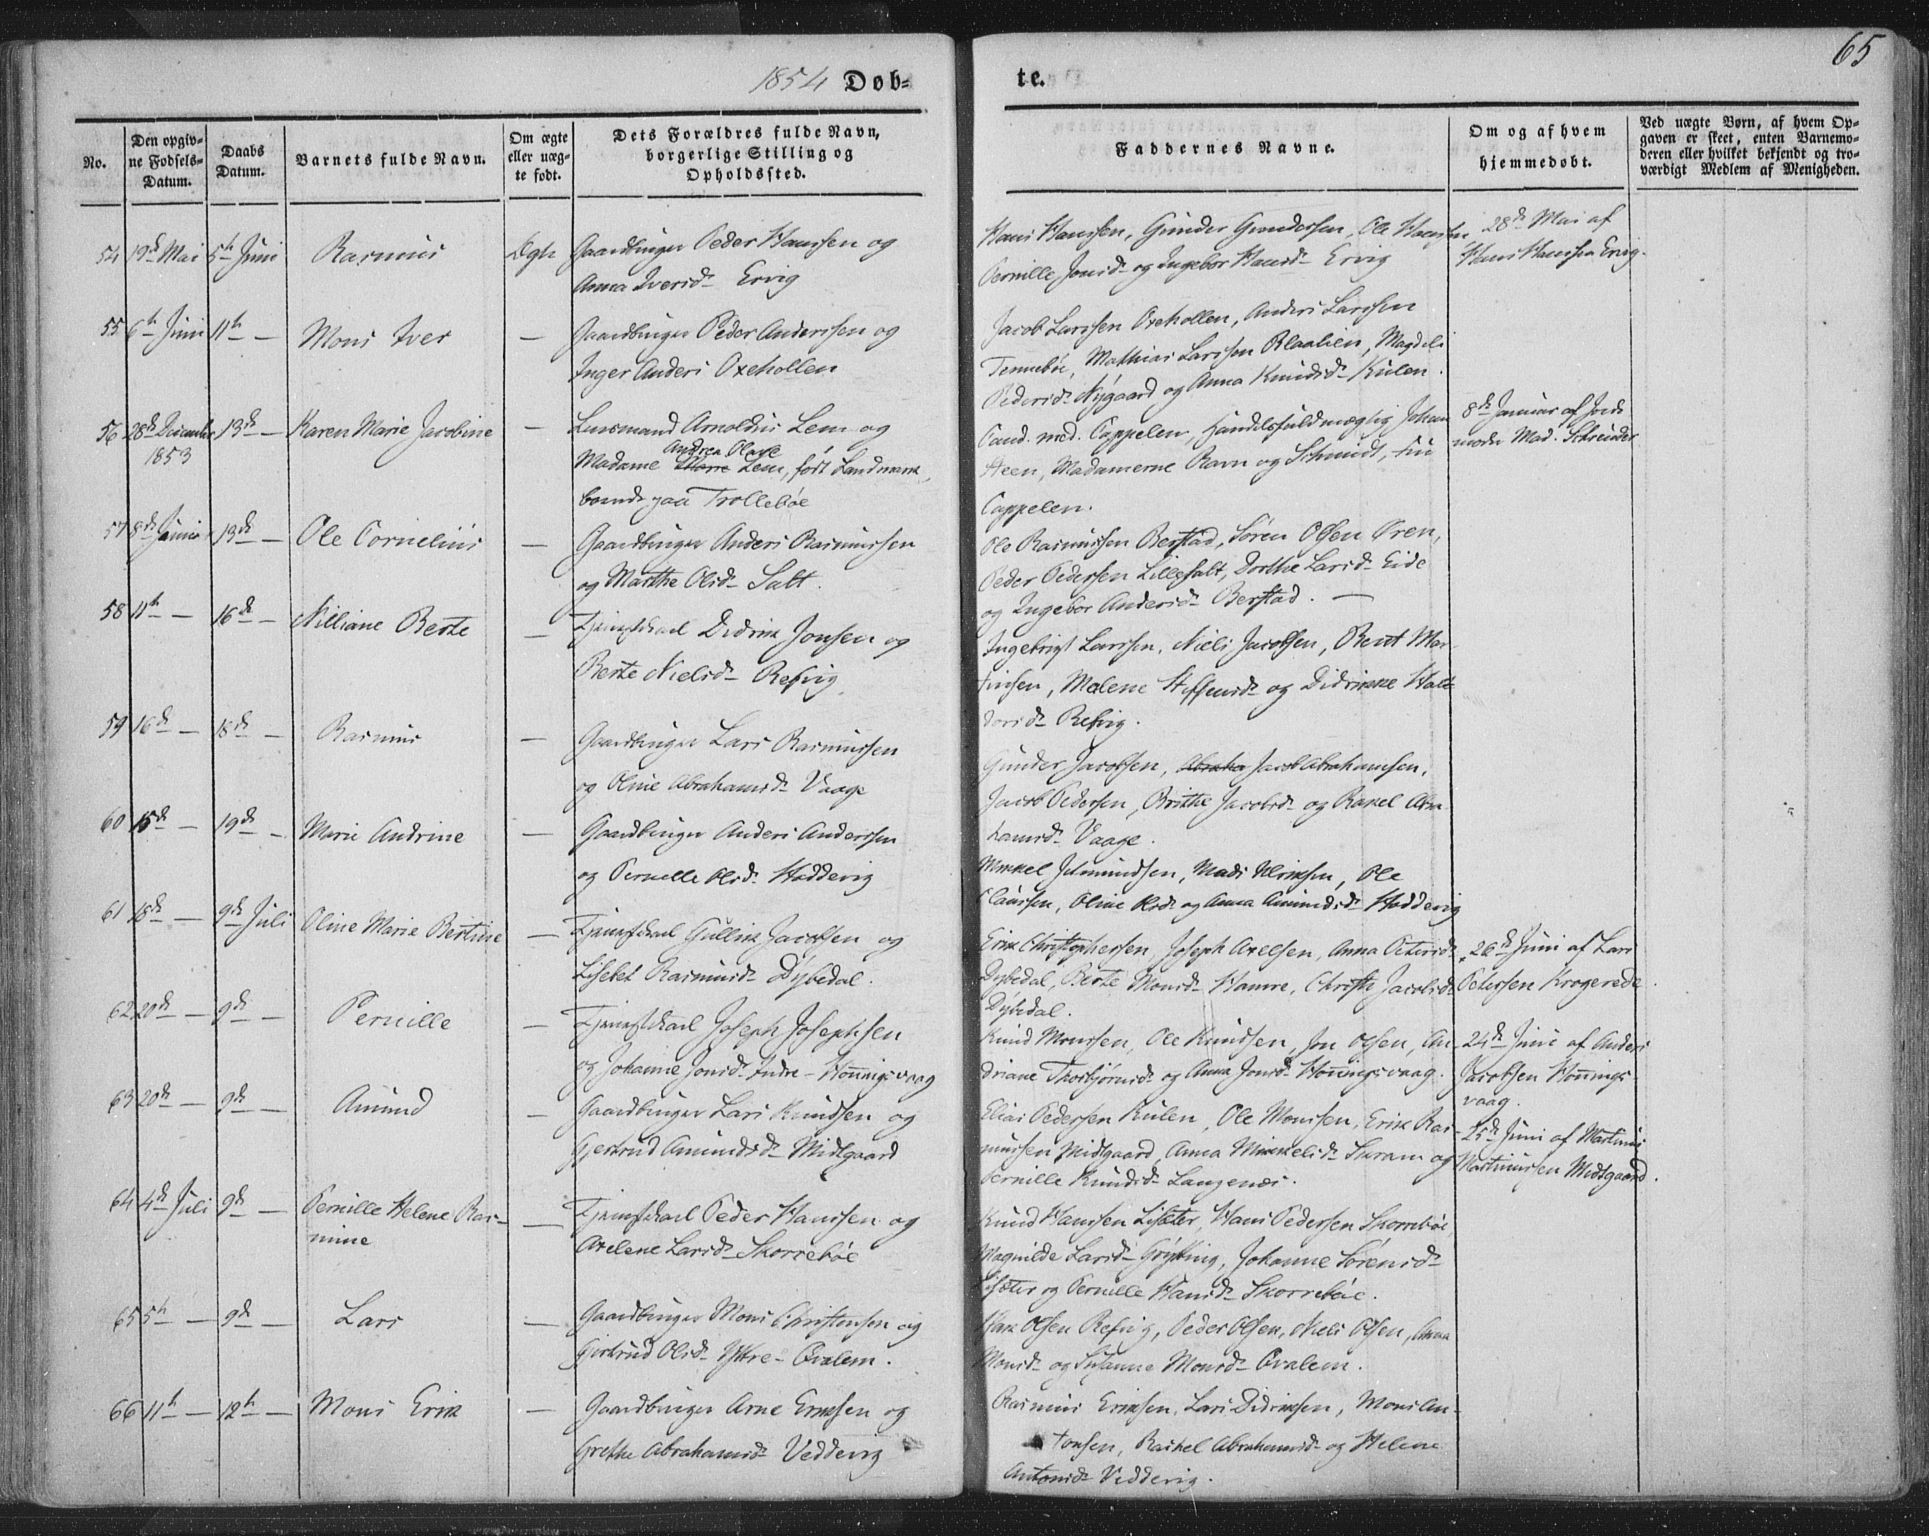 1854 Døb=
te.
65
No.
Den opgiv-
ne Fødsels-
Datum.
Daabs
Datum.
Barnets fulde Navn.
Om ægte
eller uæg-
te født.
Dets Forældres fulde Navn,
borgerlige Stilling og
Opholdssted.
Faddernes Navne.
Om og af hvem
hjemmedøbt.
Ved uægte Børn, af hvem Op-
gaven er skeet, enten Barnemo-
deren eller hvilket bekjendt og tro-
værdigt Medlem af Menigheden.
54 19de Mai 5te Juni Rasmus Ægte Gaardbruger Peder Hanssen og
Anna Iversd. Ervig
Hans Hanssen, Gunder Gundersen, Ole Hanssen
Pernille Jonsd. og Ingebor Hansd. Ervig
28de Mai af
Hans Hanssen Ervig.
55 6te Juni 11te — Mons Iver — Gaardbruger Peder Anderssen og
Inger Anders Oxehollen
Jacob Larssen Oxehollen, Anders Larssen
Tennebøe, Mathias Larssen Blaalien, Magdeli
Pedersd. Nygaard og Anna Knudsd. Kulen.
56 28de December 13de — Karen Marie Jacobine — Lensmand Arnoldus Lem og
1853
Andrea Olave
Madame Lem, født Landmark,
boende paa Trollebøe
Cand. med. Cappelen, Handelsfuldmægtig Johan
Steen, Madamerne Ravn og Schmidt,
Cappelen.
8de Januar af Jorde
moder Mad. Schreuder
57 8de Juni 13de — Ole Cornelius — Gaardbruger Anders Rasmussen
og Marthe Olsd. Salt.
Ole Rasmussen Berstad, Søren Olsen Øren,
Peder Pedersen Lillesalt, Dorthe Larsd. Eide
og Ingebor Andersd. Berstad. —
58 11te — 16de — Nilliane Berte — Tjenestkarl Didrik Jonsen og
Berte Nielsd. Refvig
Ingebrigt Larssen, Niels Jacobsen, Bent Mar-
tinsen, Malene Steffensd. og Didrikke Hal-
dorsd. Refvig.
59 16de — 18de — Rasmus — Gaardbruger Lars Rasmussen
og Oline Abrahamsd. Vaage
Gunder Jacobsen, Jacob Abrahamsen,
Jacob Pedersen, Brithe Jacobsd. og Rakel Abra-
hamsd. Vaage.
60 15de — 19de — Marie Andrine — Gaardbruger Anders Anderssen
og Pernelle Olsd. Hoddevig
Mikkel Jetmundsen, Mads Ulriksen, Ole
Claussen, Oline Olsd. og Anna Amundsd. Hoddevig
61 18de — 9de Juli Oline Marie Bertine — Tjenestkarl Gullik Jacobsen og
Lisebet Rasmusd. Dybedal.
Erik Christophersen, Joseph Axelsen, Anna Petersd.
Dybedal, Berte Monsd. Hamre, Christi Jacobsd.
Dybedal.
26de Juni af Lars
Petersen Krogerede.
62 20de — 9de — Pernille — Tjenestkarl Joseph Josephsen
og Johanne Jonsd. Indre-Honingsvaag
Knud Monssen, Ole Knudsen, Jon Olsen, An-
driane Thorbjørnsd. og Anna Jonsd. Honingsvaag.
24de Juni af Anders
Jacobsen Honings-
vaag.
63 20de — 9de — Amund — Gaardbruger Lars Knudsen og
Gjertrud Amundsd. Midtgaard
Elias Pedersen Kulen, Ole Monssen, Erik Ras-
mussen Midtgaard, Anna Mikkelsd. Skram og
Pernille Knudsd. Langenæs.
25de Juni af Martinus
Martinussen Midtgaard.
64 4de Juli 9de — Pernille Helene Ras-
mine
— Tjenestkarl Peder Hanssen og
Axelene Larsd. Skorrebøe
Knud Hanssen Lisæter, Hans Pedersen Skorrebøe
Magnilde Larsd. Gryting, Johanne Sørensd.
Lisæter og Pernille Hansd. Skorrebøe.
65 5te — 9de — Lars — Gaardbruger Mons Christensen og
Gjertrud Olsd. Ytre-Qvalem.
Olsen Refvig, Peder Olsen, Niels Olsen, Anna
Monsd. og Susanne Monsd. Qvalem.
66 11te — 12te — Mons Erik — Gaardbruger Arne Eriksen og
Grethe Abrahamsd. Vedvig
Rasmus Eriksen, Lars Didriksen, Mons An-
tonsen, Rachel Abrahamsd. og Helene
Antonsd. Vedvig.